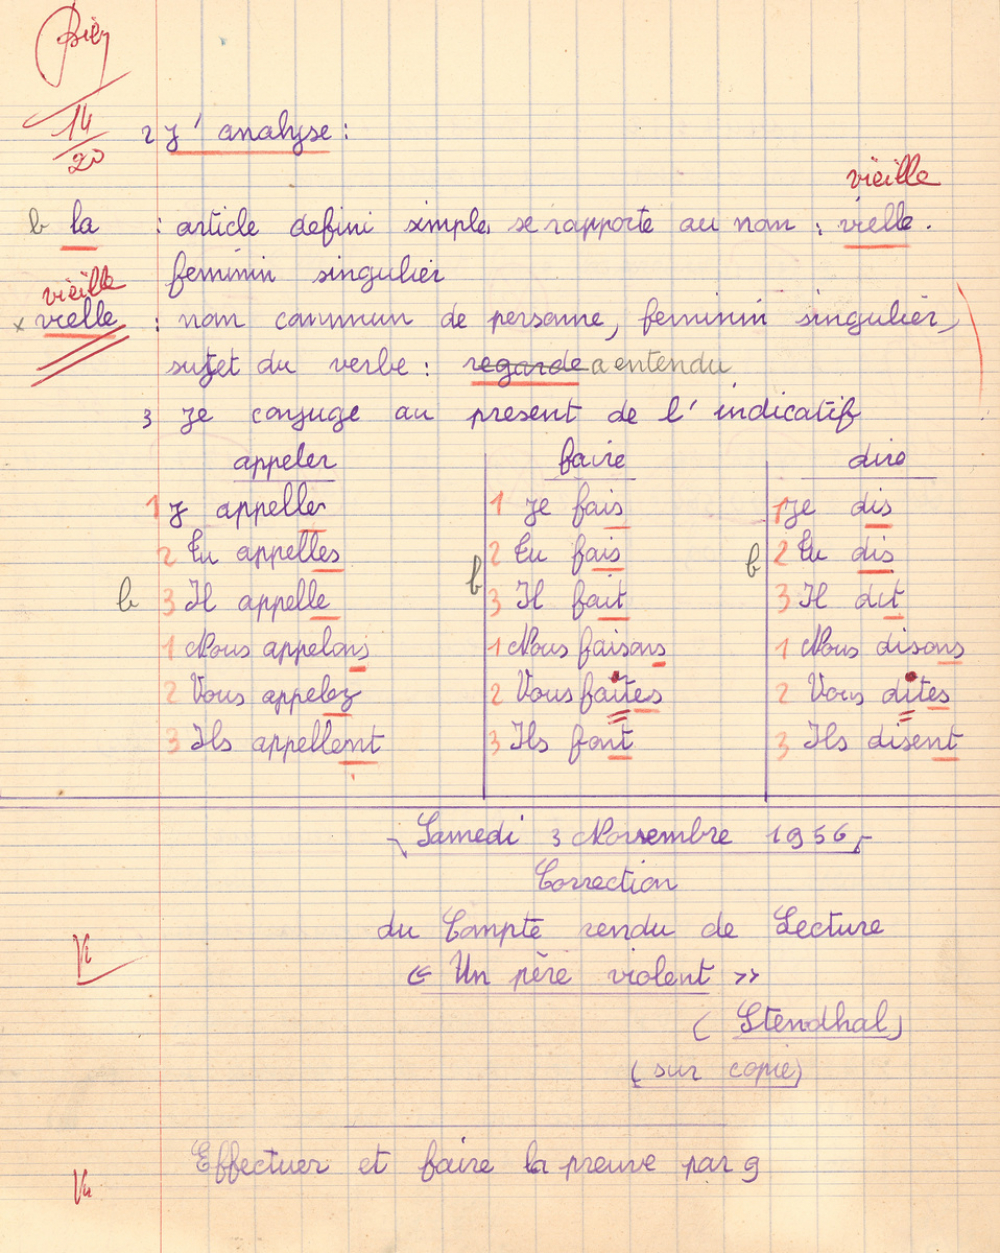 Bien
14
20
2 J' analyse :
vieille
b la : article defini simple, se rapporte au nom : vielle.
feminin singulier
vieille
x vielle : nom commun de personne, feminin singulier,
sujet du verbe : regarde a entendu
3 Je conjuge au present de l' indicatif
appeler faire dire
1 J appelle 1 Je fais 1 Je dis
2 Tu appelles 2 Tu fais 2 Tu dis
b 3 Il appelle b 3 Il fait b 3 Il dit
1 Nous appelons 1 Nous faisons 1 Nous disons
2 Vous appelez 2 Vous faites 2 Vous dites
3 Ils appellent 3 Ils font 3 Ils disent
Samedi 3 Novembre 1956
Correction
du Compte rendu de Lecture
Vu
« Un père violent »
( Stendhal )
( sur copie )
Effectuer et faire la preuve par 9
Vu